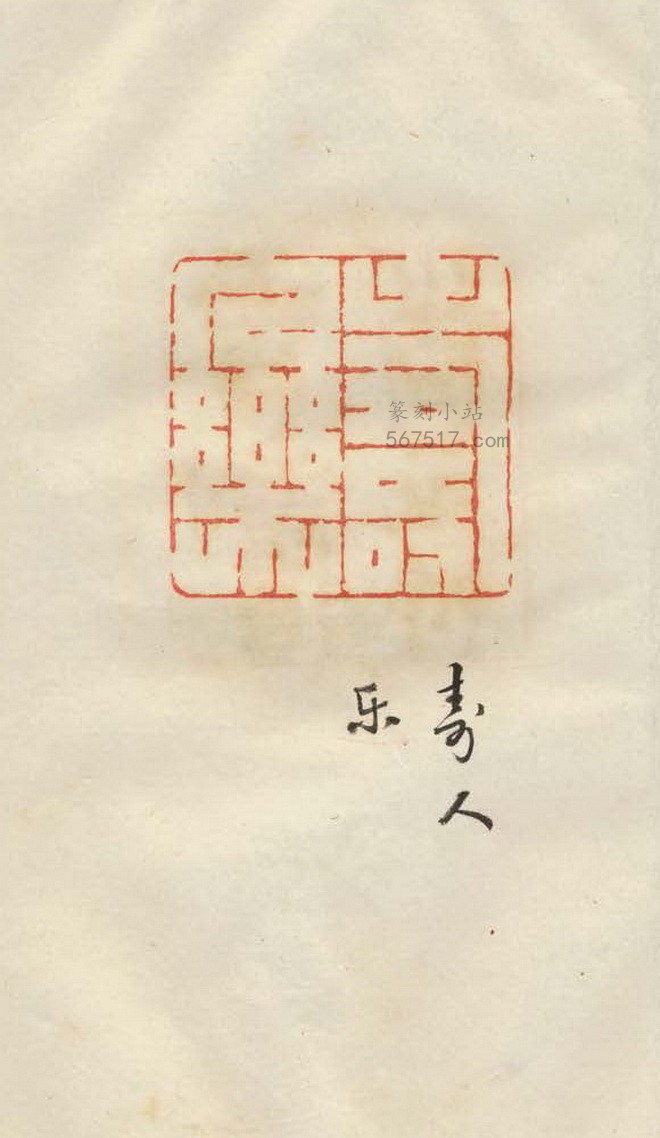 寿人
乐
篆刻小站
567517.com